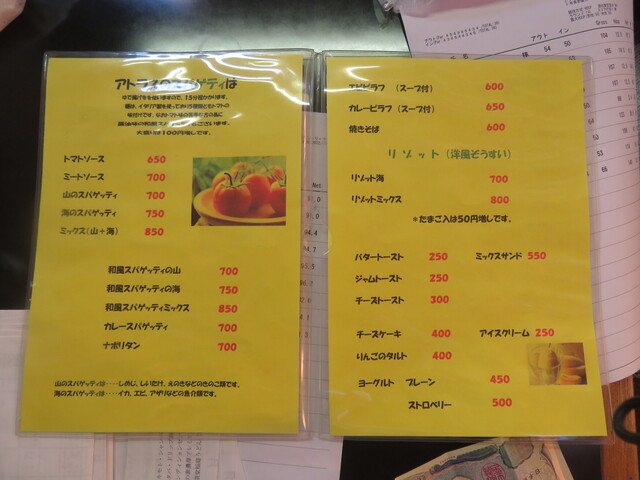 アトラスのスパゲティは
ゆで揚げを使いますので、15分位かかります。
味付けです。
醤油味の和風スパゲティもございます。
大盛りは100円増しです。
トマトソース 650
ミートソース 700
山のスパゲッティ 700
海のスパゲッティ 750
ミックス(山+海) 850
和風スパゲッティの山 700
和風スパゲッティの海 750
和風スパゲッティミックス 850
カレースパゲッティ 700
ナポリタン 700
山のスパゲッティは‥‥しめじ、しいたけ、えのきなどのきのこ類です。
海のスパゲッティは‥‥イカ、エビ、アサリなどの魚介類です。
エビピラフ (スープ付) 600
カレーピラフ (スープ付) 650
焼きそば 600
リゾット(洋風ぞうすい)
リゾット海 700
リゾットミックス 800
*たまご入は50円増しです。
バタートースト 250 ミックスサンド 550
ジャムトースト 250
チーズトースト 300
チーズケーキ 400 アイスクリーム 250
りんごのタルト 400
ヨーグルト プレーン 450
ストロベリー 500
アウト イン
54 50
Net